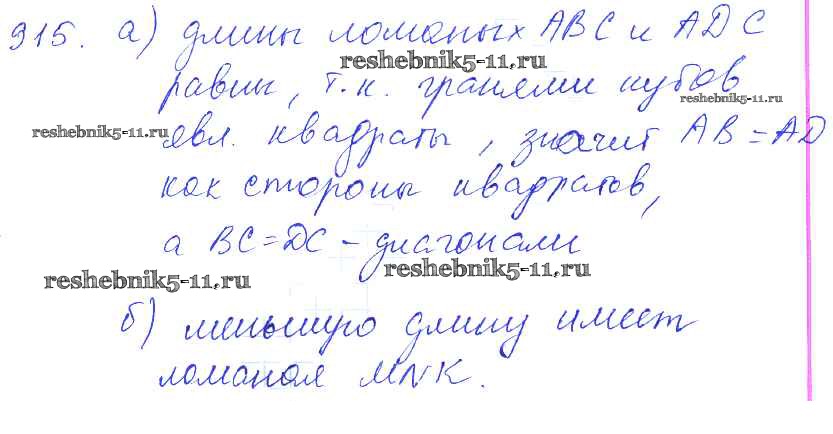 315. а) длины ломаных ABC и ADC
reshebnik5-11.ru
равны, т.к. гранями кубов
reshebnik5-11.ru
reshebnik5-11.ru
явл. квадраты, значит AB = AD
как стороны квадратов,
а BC = DC - диагонали
reshebnik5-11.ru
reshebnik5-11.ru
б) меньшую длину имеет
ломаная MNK.